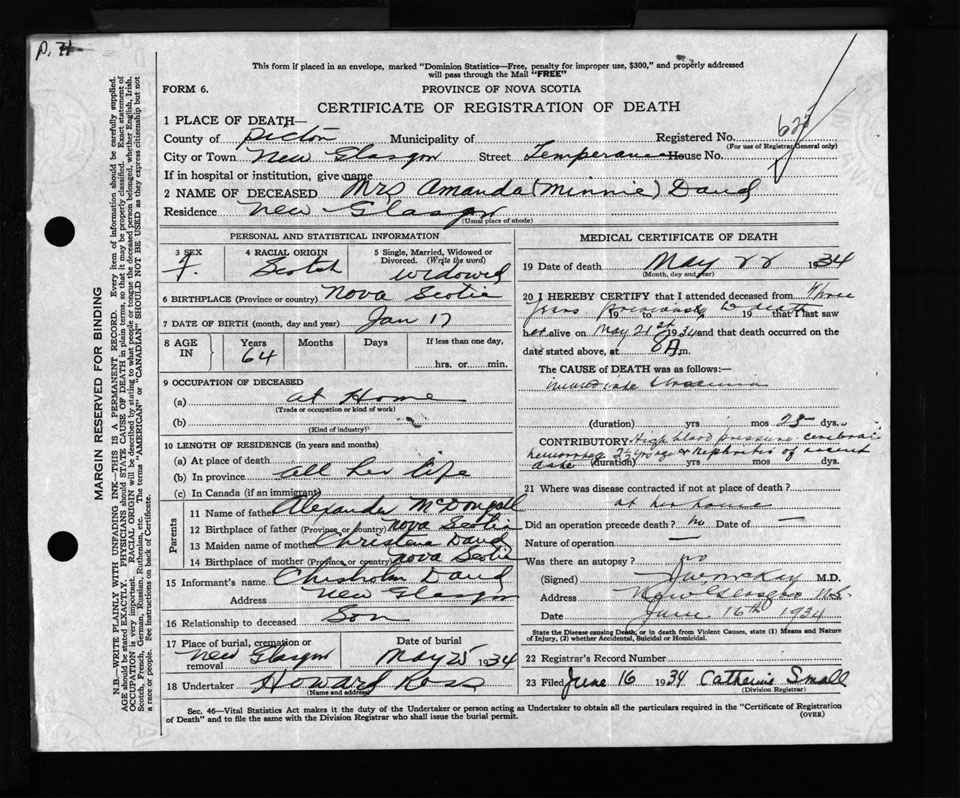 P. 71
This form if placed in an envelope, marked "Dominion Statistics—Free, penalty for improper use, $300," and properly addressed
will pass through the Mail "FREE"
FORM 6.
PROVINCE OF NOVA SCOTIA
CERTIFICATE OF REGISTRATION OF DEATH
1 PLACE OF DEATH—
County of Pictou Municipality of Registered No.
(For use of Registrar General only)
City or Town New Glasgow Street Temperance House No.
If in hospital or institution, give name
2 NAME OF DECEASED Mrs Amanda (Minnie) Daud
Residence New Glasgow
(Usual place of abode)
PERSONAL AND STATISTICAL INFORMATION
3 SEX
F
4 RACIAL ORIGIN
Scotch
5 Single, Married, Widowed or
Divorced. (Write the word)
Widowed
6 BIRTHPLACE (Province or country) Nova Scotia
7 DATE OF BIRTH (month, day and year) Jan 17
8 AGE
IN
Years
64
Months
Days
If less than one day,
hrs. or min.
9 OCCUPATION OF DECEASED
(a) at Home
(Trade or occupation or kind of work)
(b)
(Kind of industry)
10 LENGTH OF RESIDENCE (in years and months)
(a) At place of death
(b) In province all her life
(c) In Canada (if an immigrant)
Parents
11 Name of father Alexander McDougall
12 Birthplace of father (Province or country) Nova Scotia
13 Maiden name of mother Christena Daud
14 Birthplace of mother (Province or country) Nova Scotia
15 Informant's name Chisholm Daud
Address New Glasgow
16 Relationship to deceased Son
17 Place of burial, cremation or
removal New Glasgow
Date of burial
May 25 1934
18 Undertaker Howard Ross
(Name and address)
MEDICAL CERTIFICATE OF DEATH
19 Date of death May 22 1934
(Month, day and year)
20 I HEREBY CERTIFY that I attended deceased from three
years 19 previously to death 19 that I last saw
her alive on May 21st 1934 and that death occurred on the
date stated above, at 8 A m.
The CAUSE OF DEATH was as follows:
immediate Uraemia
(duration) yrs mos days
CONTRIBUTORY High blood pressure cerebral
hemorrhage ago & Nephritis of recent
date (duration) yrs mos days
21 Where was disease contracted if not at place of death?
at her home
Did an operation precede death? no Date of —
Nature of operation —
Was there an autopsy? no
(Signed) McKay M.D.
Address New Glasgow N.S.
Date June 16th 1934
State the Disease causing Death, or in death from Violent Causes, state (1) Means and Nature
of Injury, (2) whether Accidental, Suicidal or Homicidal.
22 Registrar's Record Number
23 Filed June 16 1934 Catherine Small
(Division Registrar)
Sec. 46—Vital Statistics Act makes it the duty of the Undertaker or person acting as Undertaker to obtain all the particulars required in the "Certificate of Registration
of Death" and to file the same with the Division Registrar who shall issue the burial permit.
(OVER)
MARGIN RESERVED FOR BINDING
N.B.—WRITE PLAINLY WITH UNFADING INK—THIS IS A PERMANENT RECORD. Every item of information should be carefully supplied.
AGE should be stated EXACTLY. PHYSICIANS should STATE CAUSE OF DEATH in plain terms, so that it may be properly classified. Exact statement of
OCCUPATION is very important. RACIAL ORIGIN will be described by stating to what people or tongue the deceased person belonged, whether English, Irish,
Scotch, French, German, Russian, Ruthenian, etc. The terms "AMERICAN" or "CANADIAN" SHOULD NOT BE USED as they express citizenship but not
a race or people. See instructions on back of Certificate.